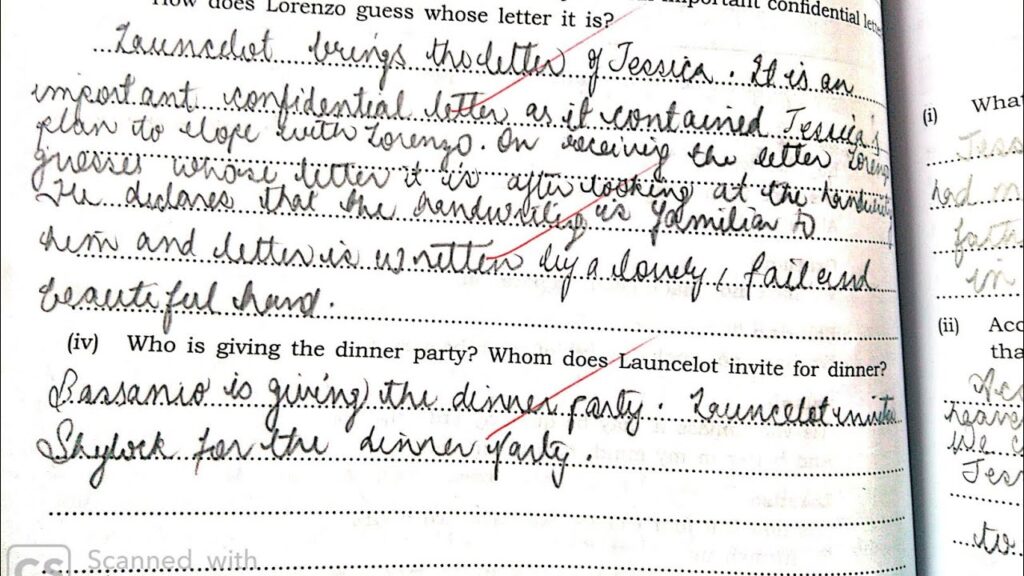 How does Lorenzo guess whose letter it is? important confidential letter
Launcelot brings the letter of Jessica. It is an
important confidential letter as it contained Jessica's
plan to elope with Lorenzo. On receiving the letter Lorenzo
guesses whose letter it is after looking at the handwriting
He declares that the handwriting is familiar to
him and letter is written by a lovely, fail and
beautiful hand.
(iv) Who is giving the dinner party? Whom does Launcelot invite for dinner?
Bassanio is giving the dinner party. Launcelot invites
Shylock for the dinner party.
CS Scanned with
(i) What
Jess
had m
fath
in
(ii) Acc
tha
Acc
heave
we c
Jes
to